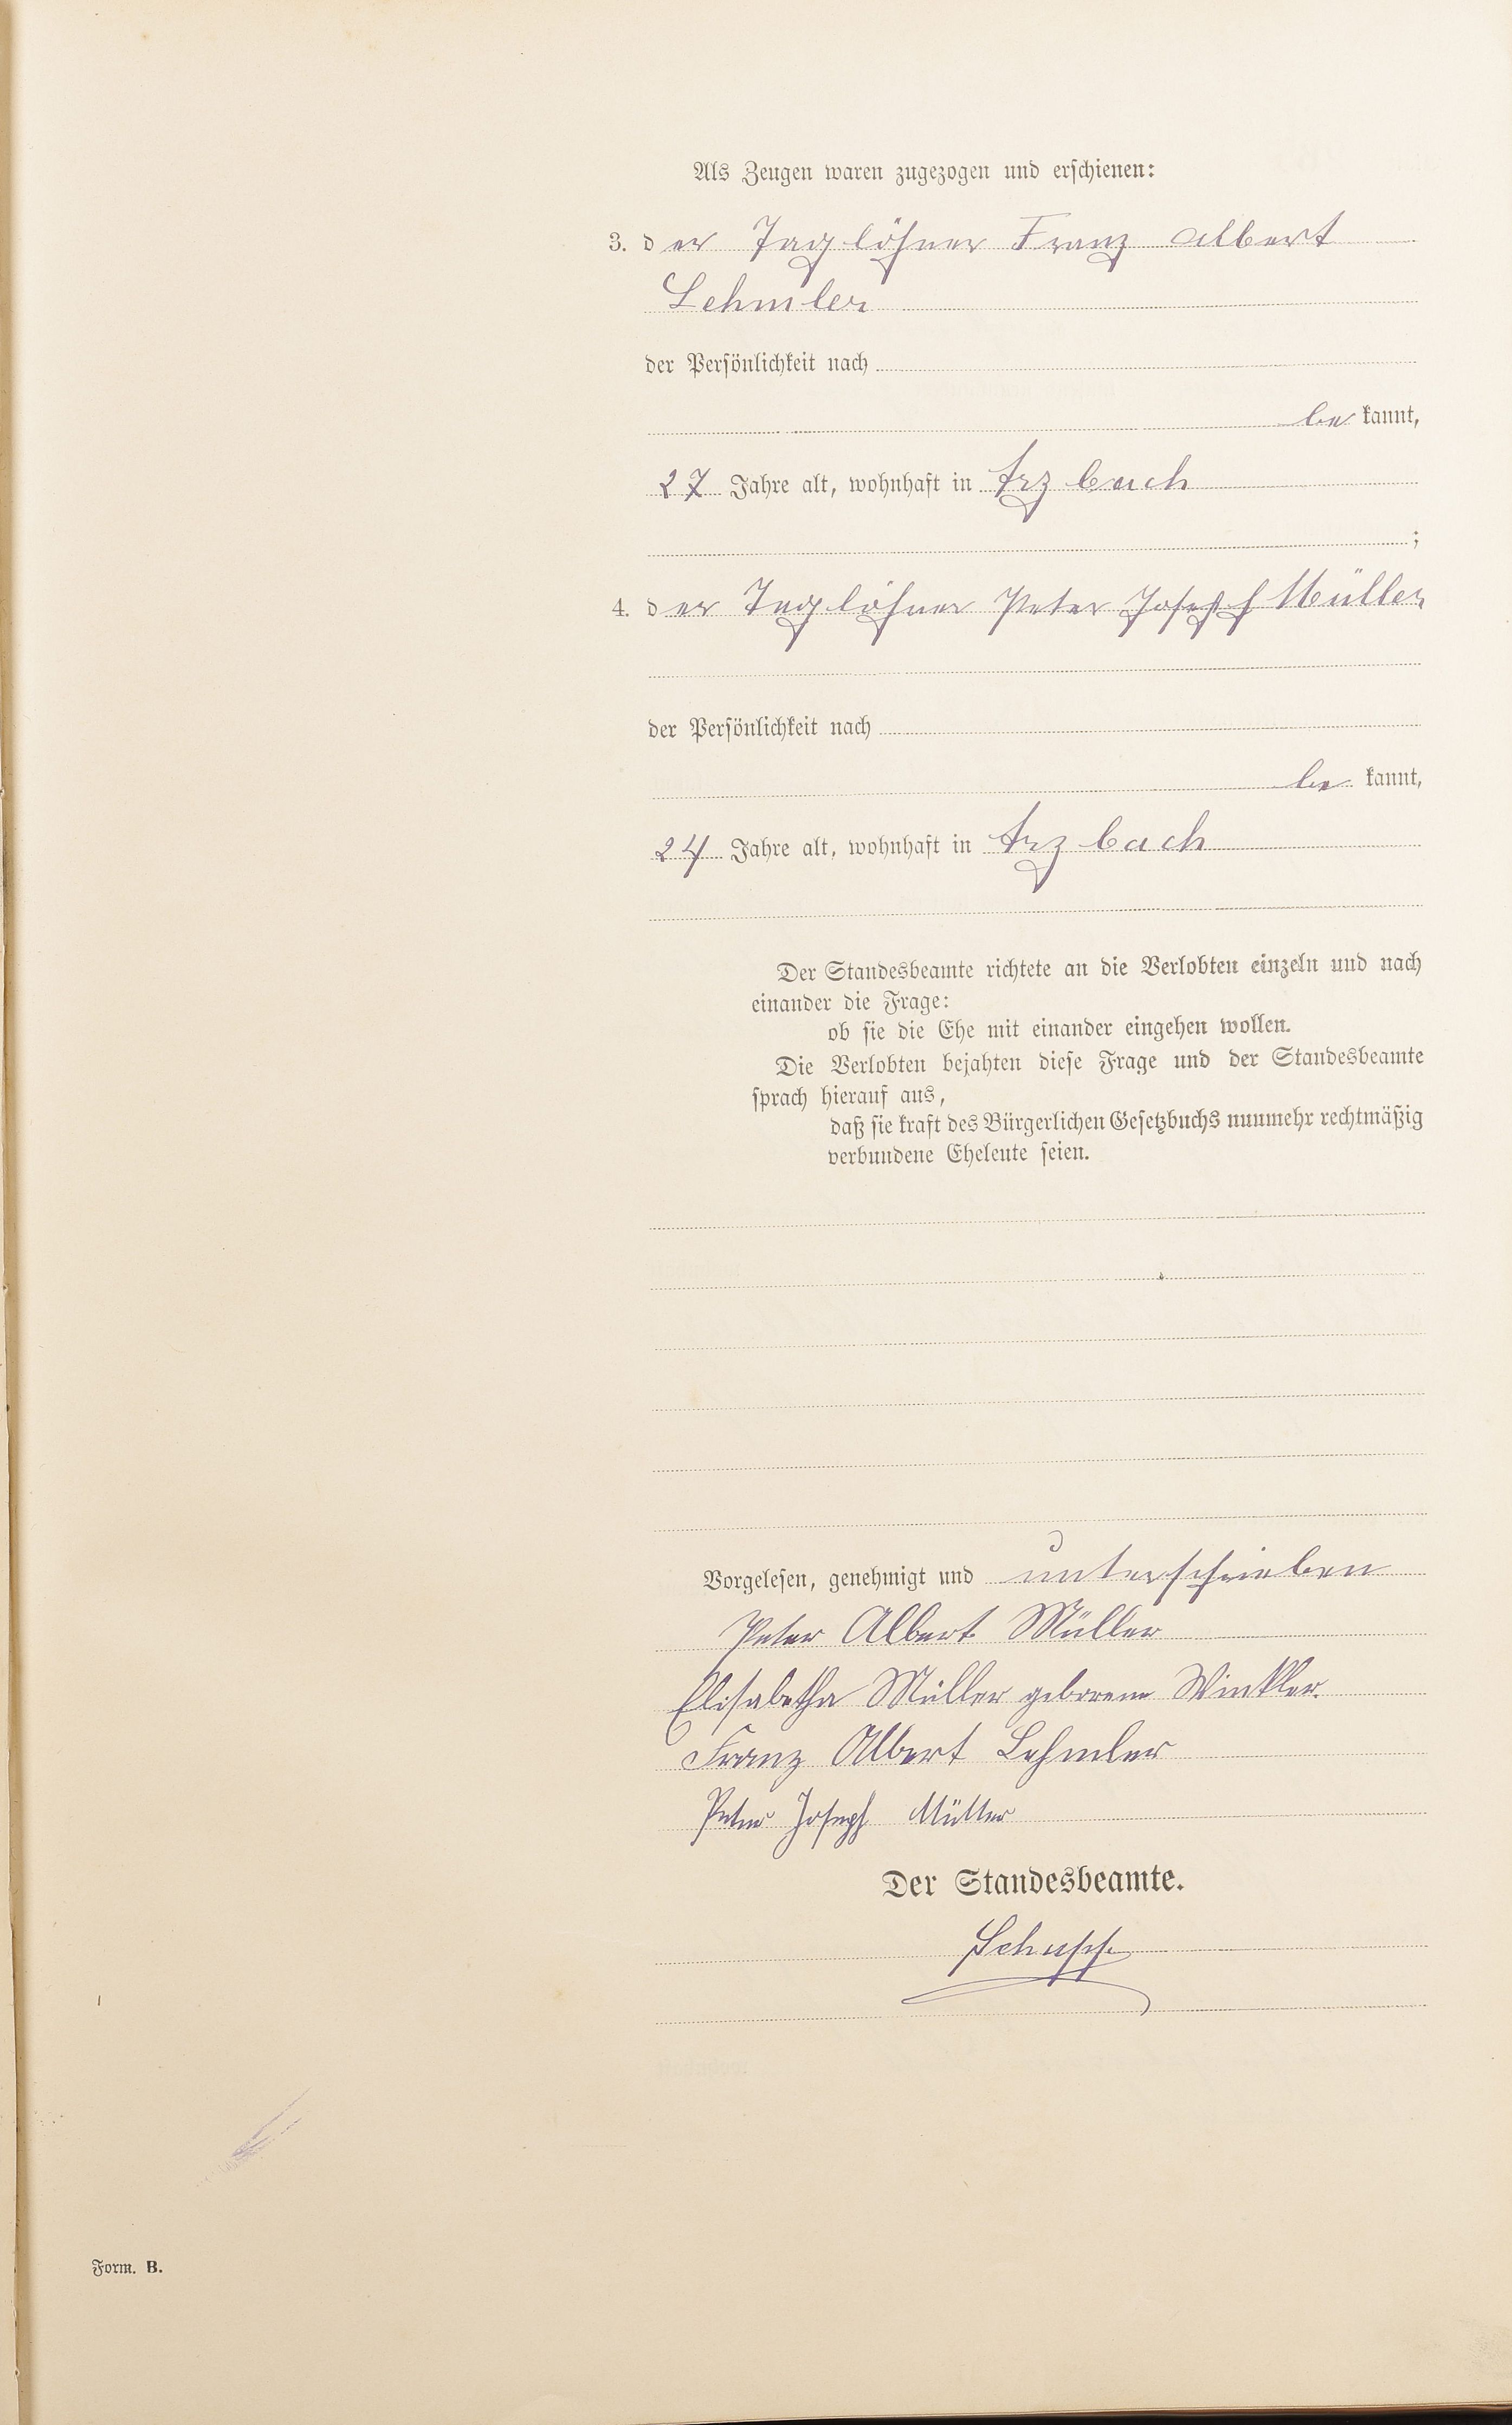 Als Zeugen waren zugezogen und erschienen:
3. der Taglöhner Franz Albert
Lehmler
der Persönlichkeit nach
be kannt,
27 Jahre alt, wohnhaft in Arzbach
;
4. der Taglöhner Peter Joseph Müller
der Persönlichkeit nach
be kannt,
24 Jahre alt, wohnhaft in Arzbach
Der Standesbeamte richtete an die Verlobten einzeln und nach
einander die Frage:
ob sie die Ehe mit einander eingehen wollen.
Die Verlobten bejahten diese Frage und der Standesbeamte
sprach hierauf aus,
daß sie kraft des Bürgerlichen Gesetzbuchs nunmehr rechtmäßig
verbundene Eheleute seien.
Vorgelesen, genehmigt und unterschrieben
Peter Albert Müller
Elisabetha Müller geborene Winkler.
Franz Albert Lehmler
Peter Joseph Müller
Der Standesbeamte.
Schupp
Form. B.